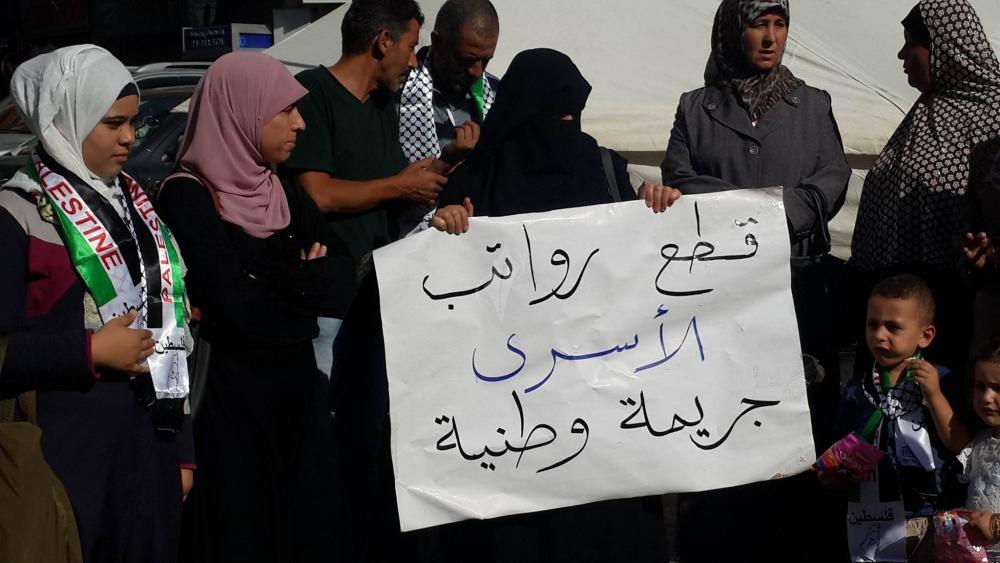 قطع رواتب
الأسرى
جريمة وطنية
PALESTINE
PALESTINE
فلسطين
فلسطين